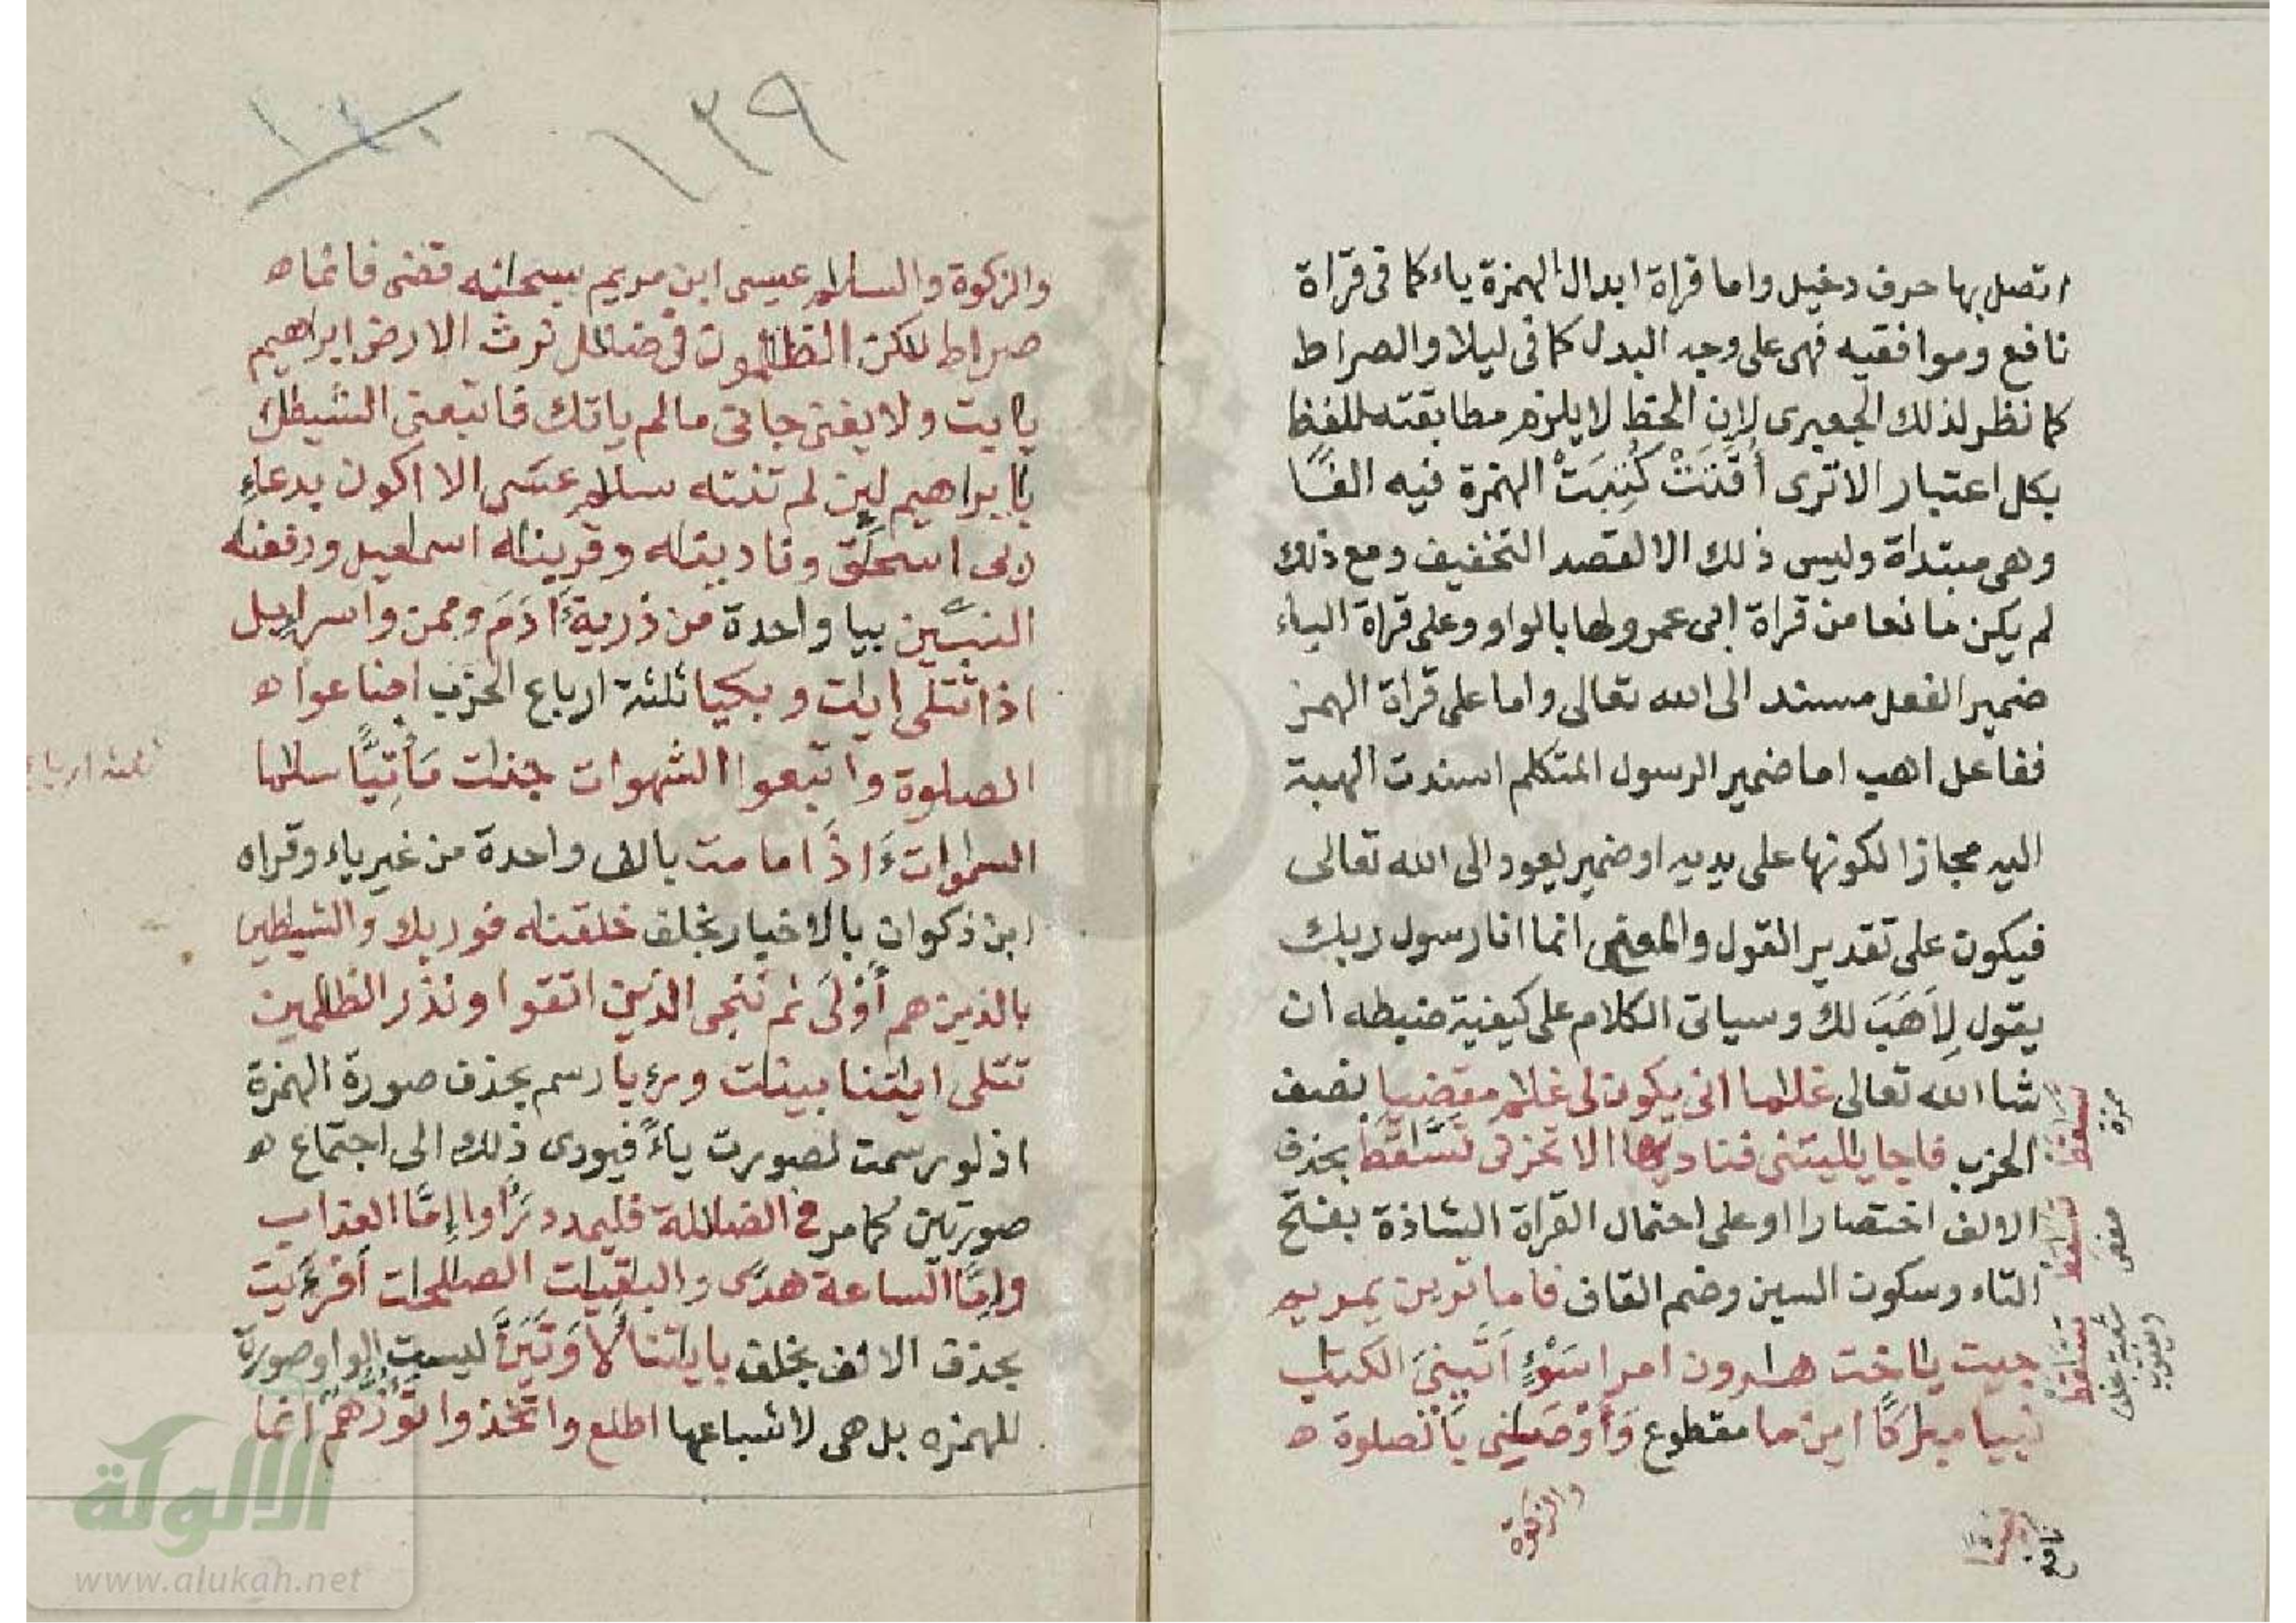 اتصل بها حرف دخيل واما قراة ابدال الهمزة ياء كما فى قراة
نافع وموافقيه فهى على وجه البدل كما فى ليلا والصراط
كما نظر لذلك الجعبرى لان الخط لا يلزم مطابقته للفظ
بكل اعتبار الاترى أُقِّتَتْ كُتِبَتْ الهمزة فيه الفًا
وهى مبتداة وليس ذلك الا لقصد التخفيف ومع ذلك
لم يكن مانعا من قراة ابى عمرو لها بالواو وعلى قراة الياء
ضمير الفعل مسند الى الله تعالى واما على قراة الهمز
ففاعل اهب اما ضمير الرسول المتكلم اسندت الهبة
اليه مجازا لكونها على يديه او ضمير يعود الى الله تعالى
فيكون على تقدير القول والمعنى انما انا رسول ربك
يقول لِأَهَبَ لك وسياتى الكلام على كيفية ضبطه ان
شا الله تعالى غلما انى يكون لى غلم مقضيا نصف
الحزب فاجا يليتنى فناديها الا تحزنى تَسَّقَط بحذف
الالف اختصارا او على احتمال القراة الشاذة بفتح
التاء وسكون السين وضم القاف فاما ترين يمريم
جيت ياخت هرون امرا سَوْءٍ اَتَىنِىَ الكتب
نبيا مبركًا اين ما مقطوع وَأَوْصَىنى بِالصلوة ه
والزكوة
حمزة
حفص
تساقط
شعبة
ويعقوب
نافع
١٣٩
والزكوة والسلم عيسى ابن مريم سبحنه قضى فانما ه
صراط لكن الظلمون فى ضلل نرث الارض ابراهيم
يابت ولا يغنى جانى مالم ياتك فاتبعنى الشيطن
يابراهيم لين لم تنته سلم عسى الا اكون بدعاءِ
ربى اسحق وناديته وقربنه اسمعيل ورفعنه
النبيّن بيا واحدة من ذرية ءادم وممن واسراءيل
اذا تتلى ايت وبكيا ثلثة ارباع الحزب اضاعوا ه
الصلوة واتبعوا الشهوات جنت مَأْتِيًّا سلما
السموات ءَاذا ما مت بالف واحدة من غير ياء وقراه
ابن ذكوان بالاخبار بخلف خلقنه فوربك والشيطين
بالذين هم أَوْلَى ثم ننجى الذين اتقوا ونذر الظلمين
تتلى ايتنا بينت ورءيا رسم بحذف صورة الهمزة
اذ لو رسمت لصورت ياءً فيودى ذلك الى اجتماع ه
صورتين كما مر فى الضللة فليمدد رَأَوا إِمَّا العذاب
وإِمَّا الساعة هدًى والبقيت الصلحت أفرءيت
بحذف الالف بخلف بايتنا لَأُوتَيَنَّ ليست الواو صورة
للهمزه بل هى لاشباعها اطلع واتخذوا تَؤُزُّهُمْ انما
ثلثة ارباع
الالوكة
www.alukah.net